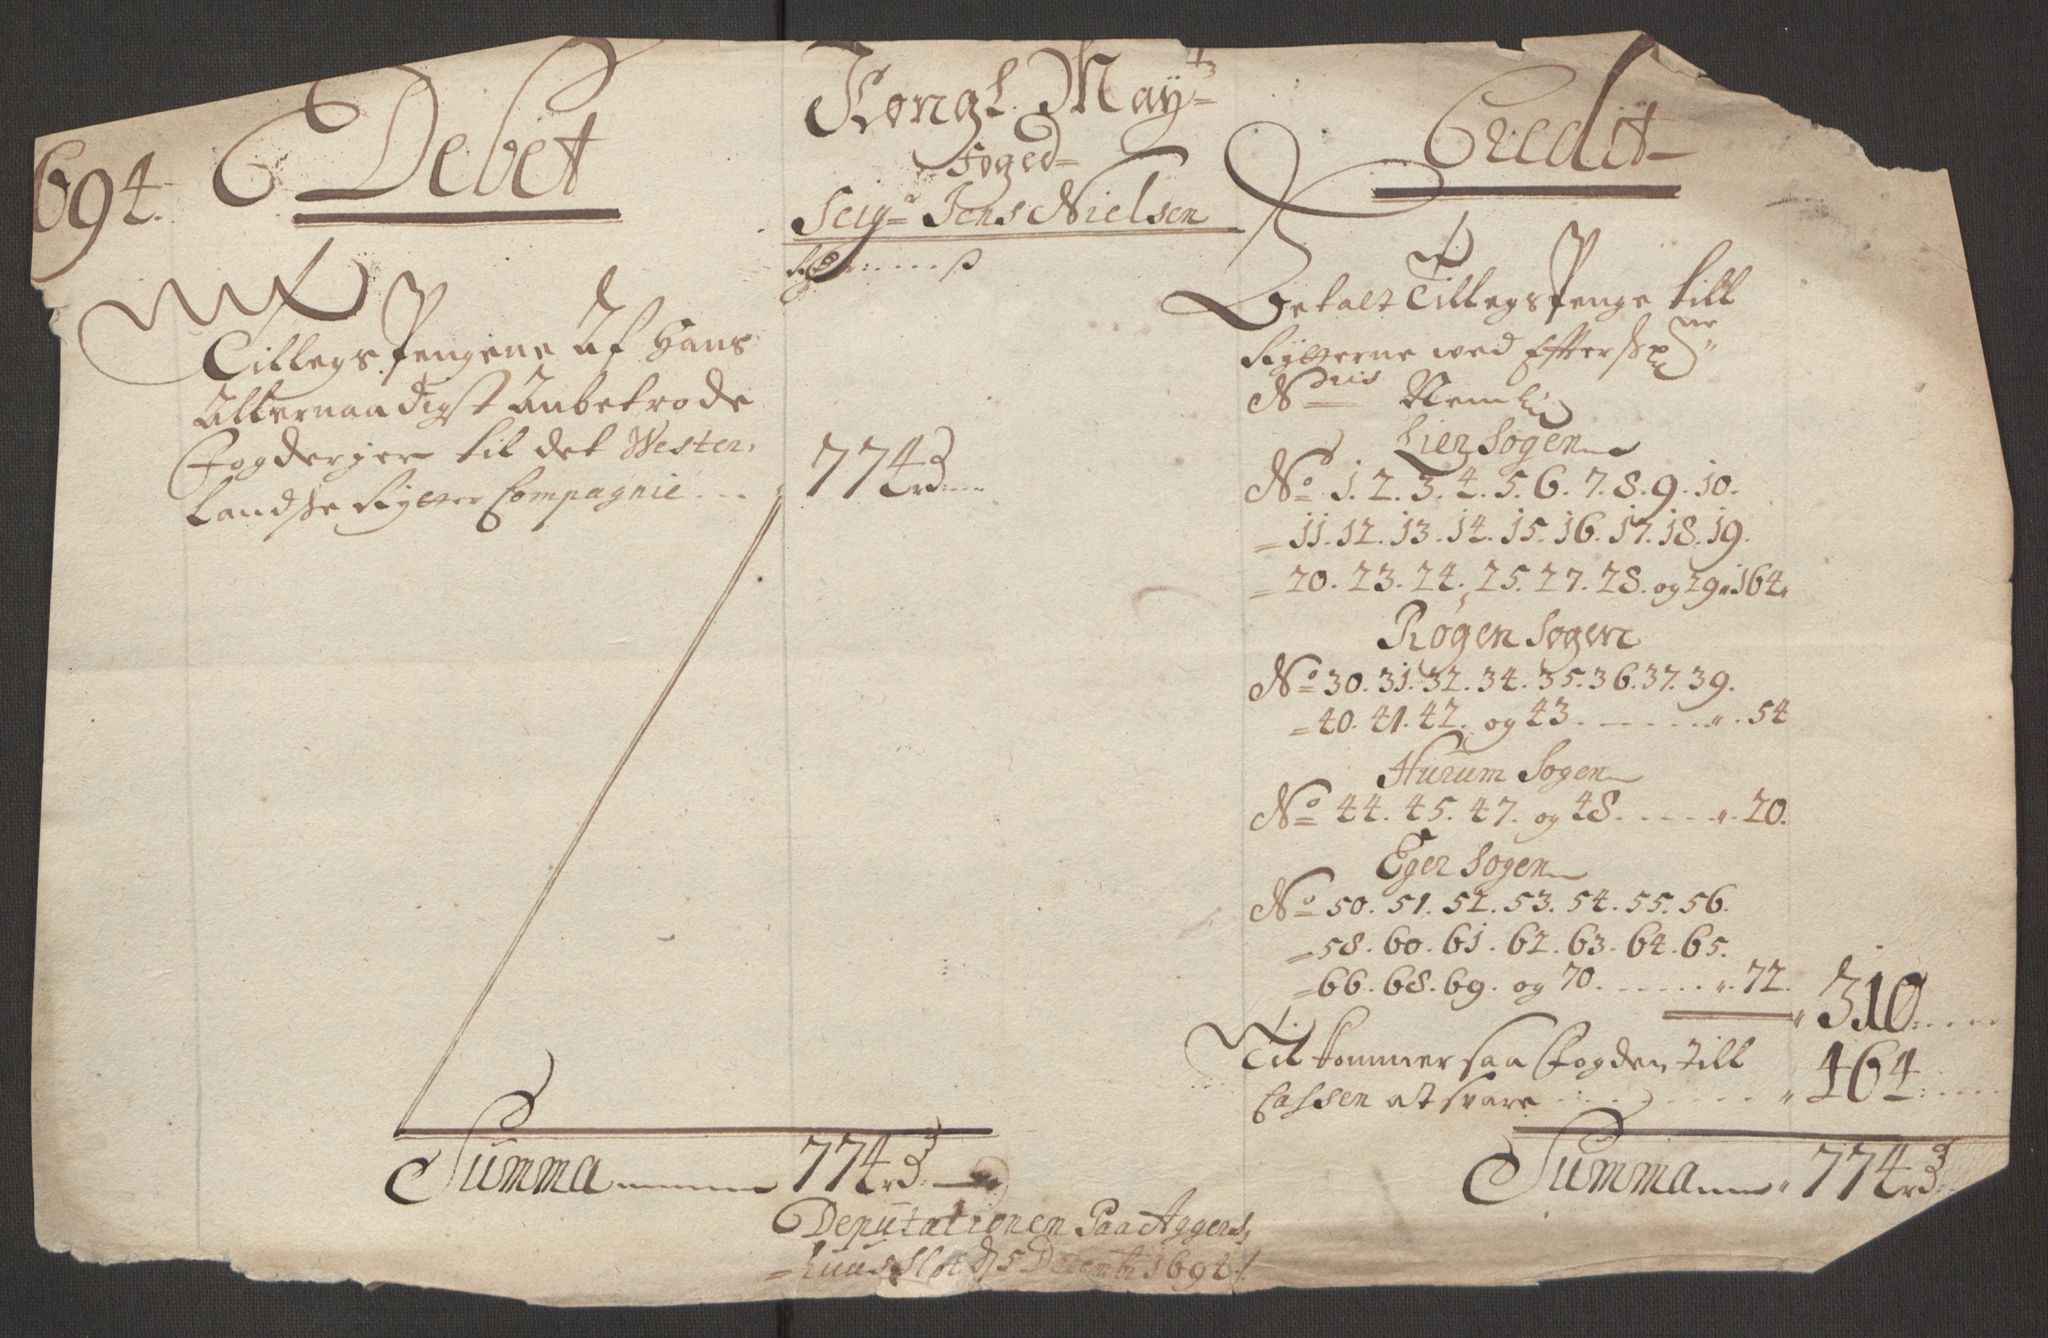 694.
Debet
Kongl. May:tz
Foged
Seig:r Jens Nielsen
Credit
Tillegs Pengene Af Hans
Allernaadigst Anbetrode
Fogderjer til det Wester,
landske Rytter Compagnie 774 rd
Betalt Tillegs Penge till
Rytterne wed Effterskr:ne
N:ris Nemlig
Lier Sogen
No 1. 2. 3. 4. 5. 6. 7. 8. 9. 10.
= 11. 12. 13. 14. 15. 16. 17. 18. 19.
= 20. 23. 24. 25. 27. 28. og 29 " 164 "
Rögen Sogen
No 30. 31. 32. 34. 35. 36. 37. 39.
= 40. 41. 42. og 43 . . . . . " . 54
Hurum Sogen
No 44. 45. 47. og 48 . . . . . " . 20.
Eger Sogen
No 50. 51. 52. 53. 54. 55. 56.
= 58. 60. 61. 62. 63. 64. 65.
= 66. 68. 69. og 70 . . . . . " . 72.
" 310
Til kommer saa Fogden till
Cassen at svare " 464
Summa 774 rd
Summa " 774 rd
Deputationen Paa Aggers,
=huus Slot d 5 Decembr 1694 /.